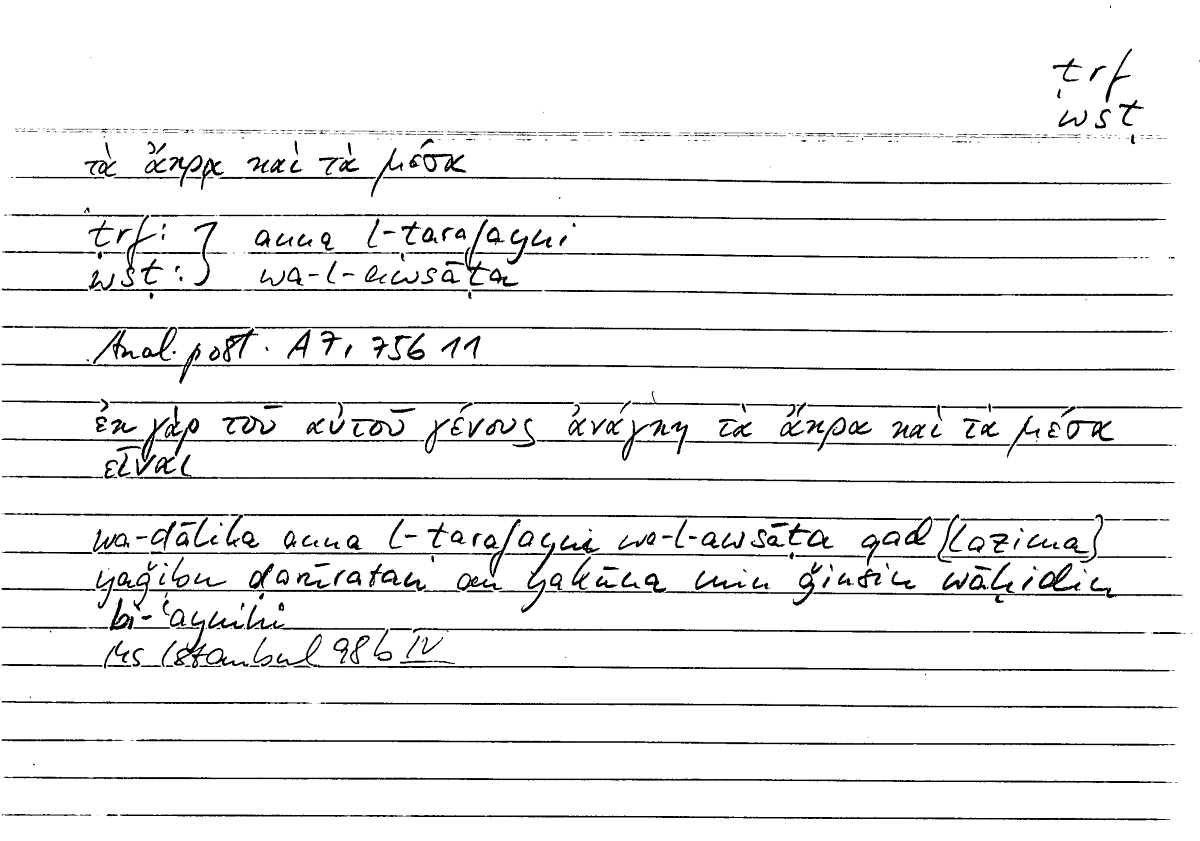 ṭrf
wsṭ
τὰ ἄκρα καὶ τὰ μέσα
ṭrf: } anna l-ṭarafayni
wsṭ: } wa-l-awsāṭa
Anal. post. A 7, 75b 11
ἐκ γὰρ τοῦ αὐτοῦ γένους ἀνάγκη τὰ ἄκρα καὶ τὰ μέσα
εἶναι
wa-ḏālika anna l-ṭarafayni wa-l-awsāṭa qad {lazima}
yaǧibu ḍarūratan an yakūna min ǧinsin wāḥidin
bi-ʿaynihi
Ms Istanbul 98b IV